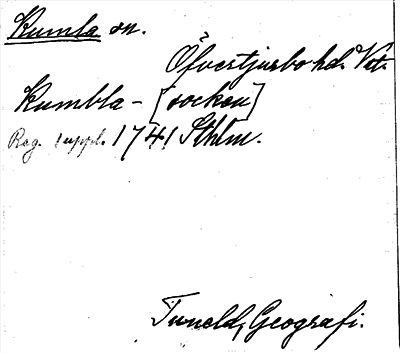 Kumla sn.
Öfvertjurbo hd. Vst.
Kumbla - [socken]
Reg. suppl. 1741 Sthlm.
Tuneld, Geografi.